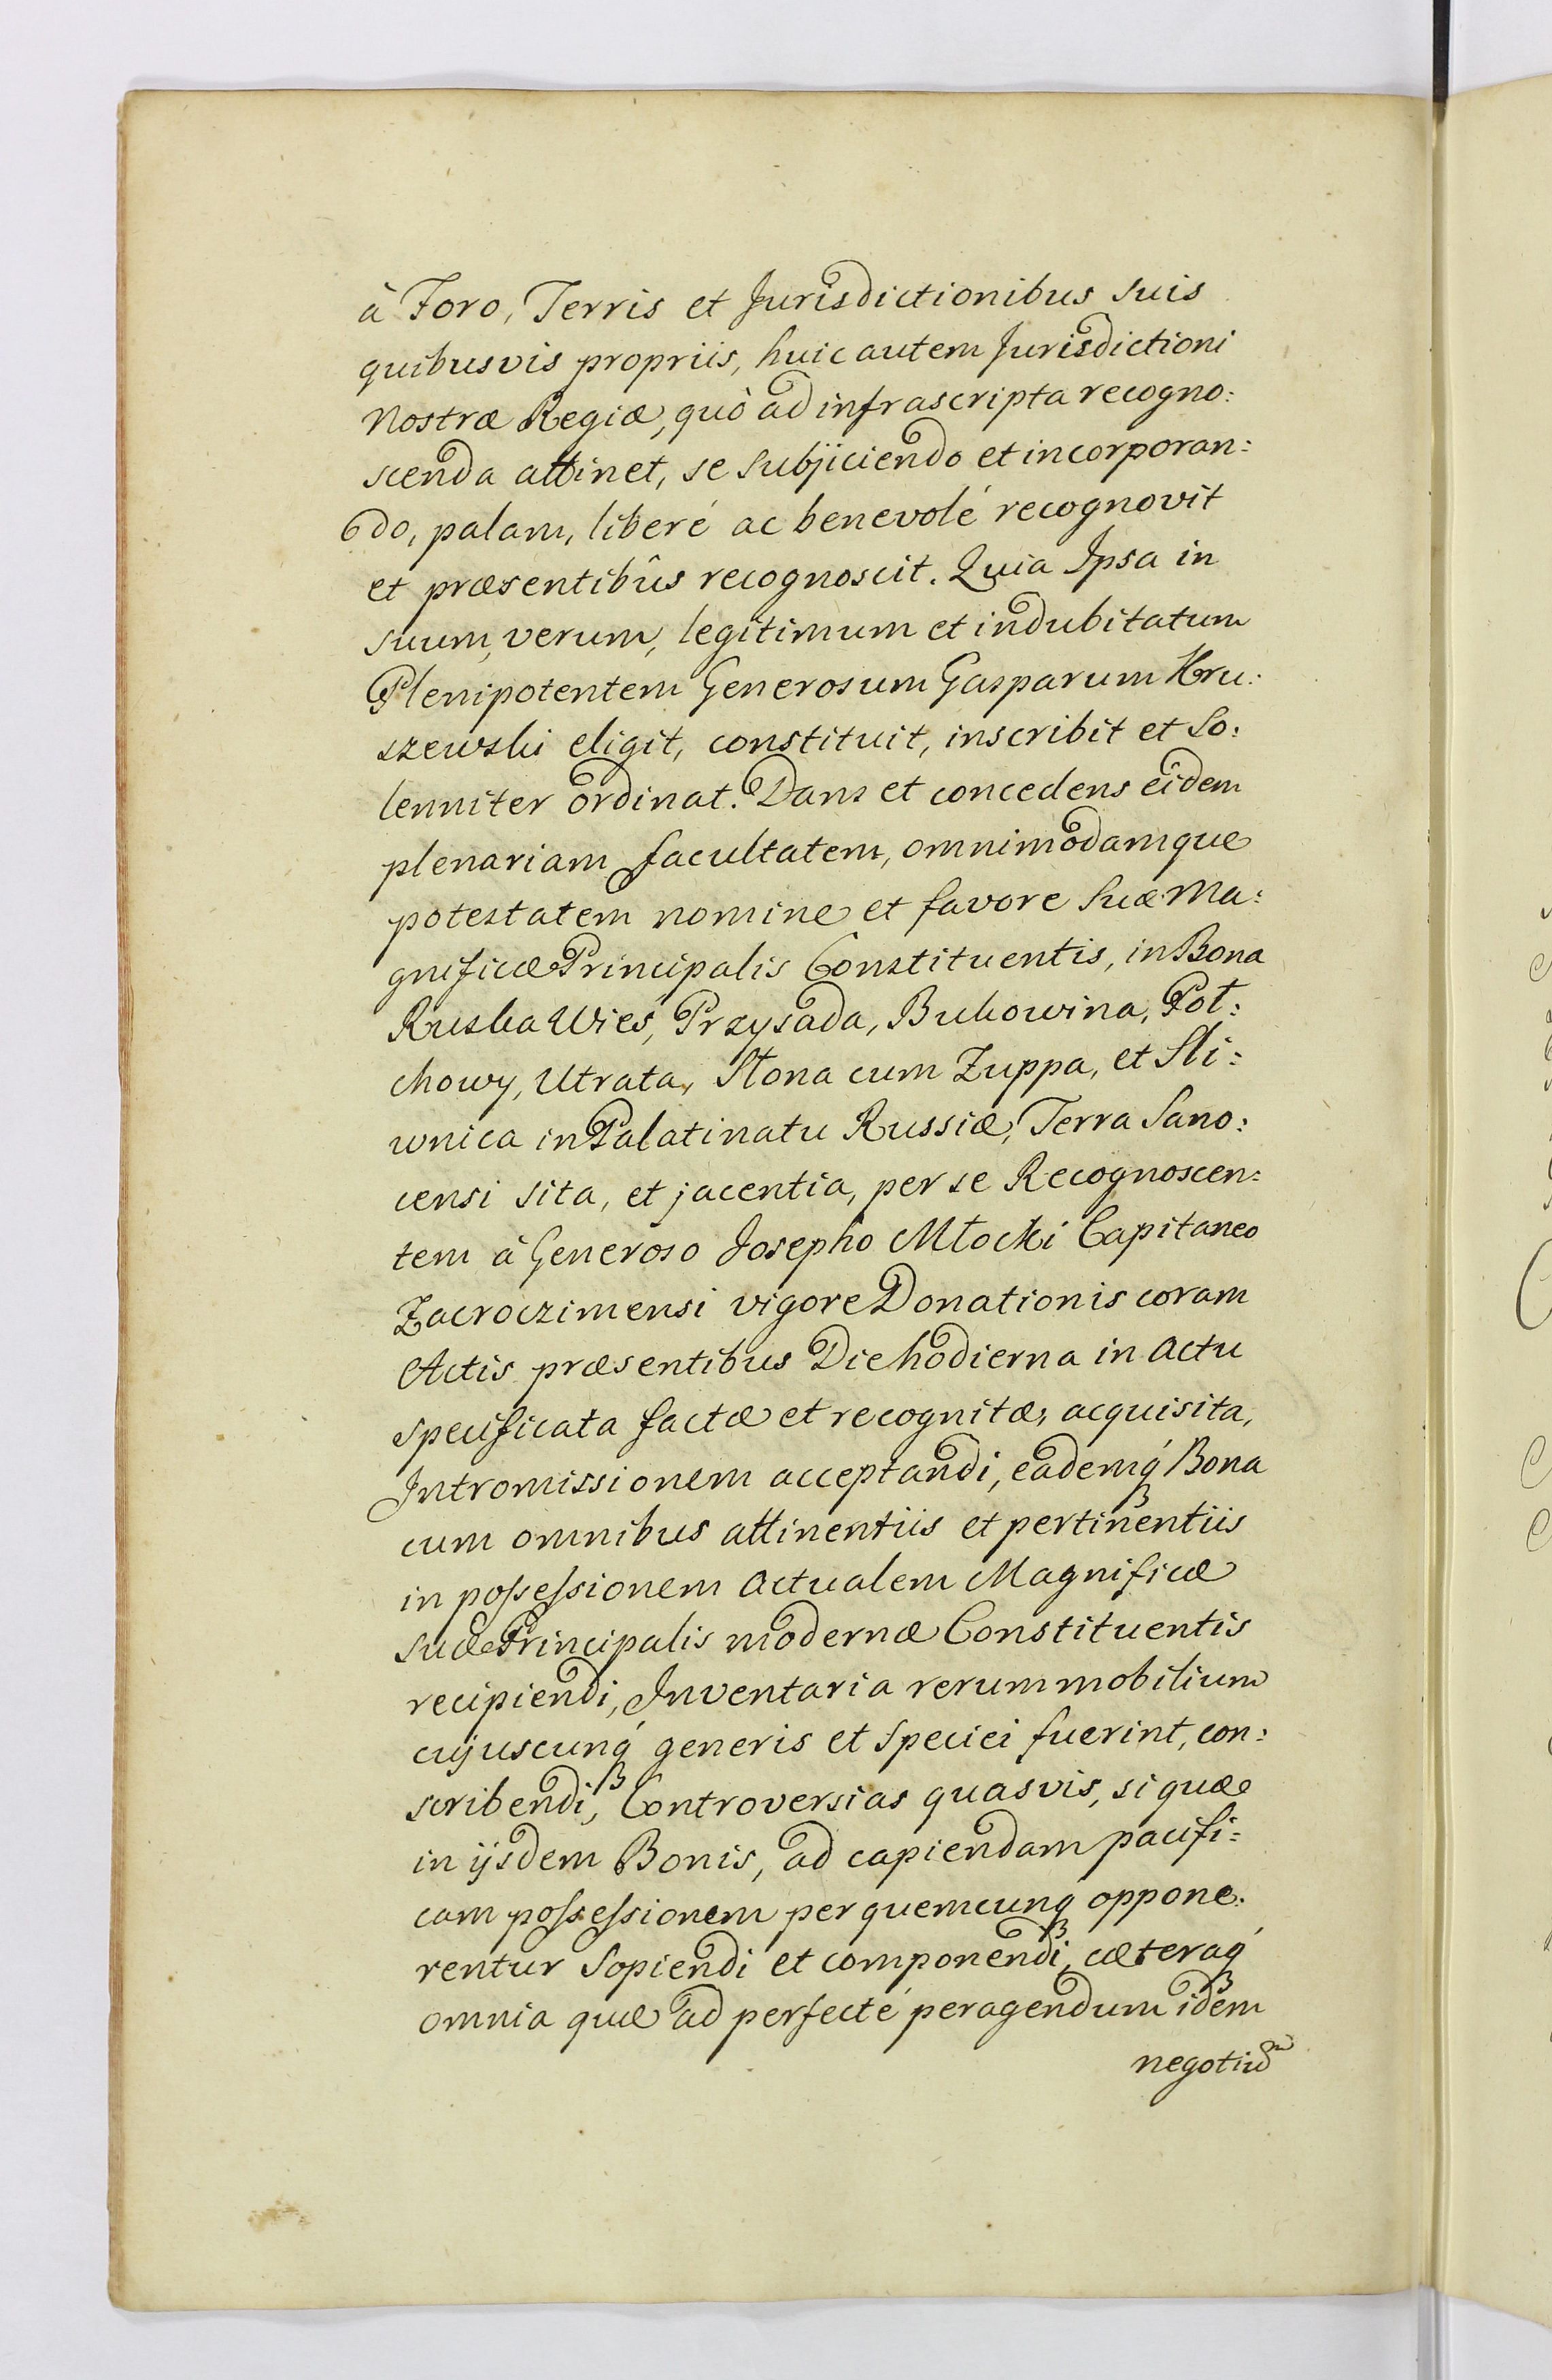 à Foro, Terris et Jurisdictionibus suis
quibusvis propriis, huic autem Jurisdictioni
Nostræ Regiæ, quò ad infrascripta recogno:
scenda attinet, se subjiciendo et incorporan:
do, palam, liberé ac benevolé recognovit
et præsentibûs recognoscit. Quia Ipsa in
suum, verum, legitimum et indubitatum
Plenipotentem Generosum Gasparum Kru:
szewski eligit, constituit, inscribit et So:
lenniter ordinat. Dans et concedens eidem
plenariam facultatem, omnimodamque
potestatem nomine et favore suæ Ma:
gnificæ Principalis Constituentis, in Bona
Ruska Wieś, Przysada, Bukowina, Poł:
chowy, Utrata, Słona cum Zuppa, et Sli:
wnica in Palatinatu Russiæ, Terra Sano:
censi sita, et jacentia, per se Recognoscen:
tem à Generoso Josepho Młocki Capitaneo
Zacroczimensi vigore Donationis coram
Actis præsentibus Die hodierna in Actu
specificata factæ et recognitæ, acquisita,
Intromissionem acceptandi, eademq́ Bona
cum omnibus attinentiis et pertinentiis
in possessionem actualem Magnificæ
suæ Principalis modernæ Constituentis
recipiendi, Inventaria rerum mobilium
cujuscunq́ generis et speciei fuerint, con:
scribendi, Controversias quasvis, si quæ
in ijsdem Bonis, ad capiendam pacifi:
cam possessionem per quemcunq́ oppone:
rentur sopiendi et componendi, cæteraq́
omnia quæ ad perfecté peragendum idem
negotiu͂